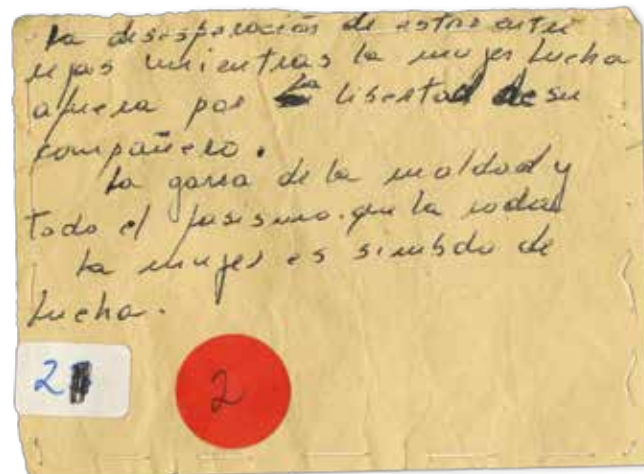 la desesperación de estar entre
rejas mientras la mujer lucha
afuera por la libertad de su
compañero.
La garra de la maldad y
todo el fasismo que la rodea
La mujer es simbolo de
lucha.
2
2